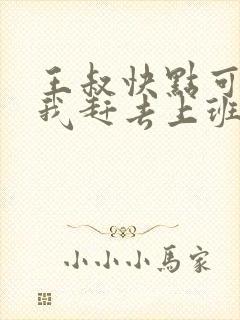 王叔快點可
我赶去上班
小小小馬家